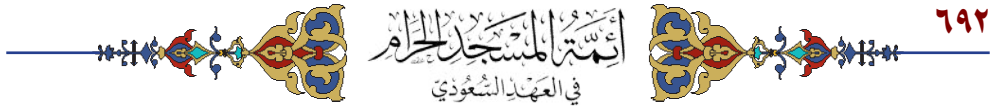 ٦٩٢
أئمة المسجد الحرام
في العهد السعودي